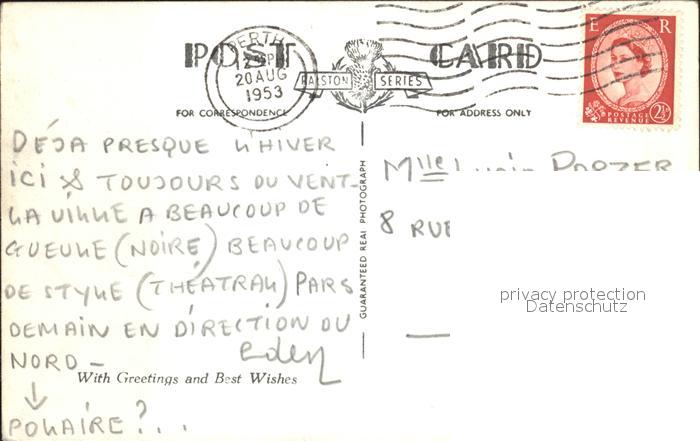 POST CARD
PERTH
20 AUG
1953
RALSTON SERIES
E R
POSTAGE
REVENUE
2½D
FOR CORRESPONDENCE
FOR ADDRESS ONLY
DÉJA PRESQUE L'HIVER
ICI & TOUJOURS DU VENT-
LA VILLE A BEAUCOUP DE
GUEULE (NOIRE) BEAUCOUP
DE STYLE (THÉATRAL) PARS
DEMAIN EN DIRECTION DU
NORD -
POLAIRE?...
With Greetings and Best Wishes
GUARANTEED REAL PHOTOGRAPH
Mlle
8 RUE
privacy protection
Datenschutz